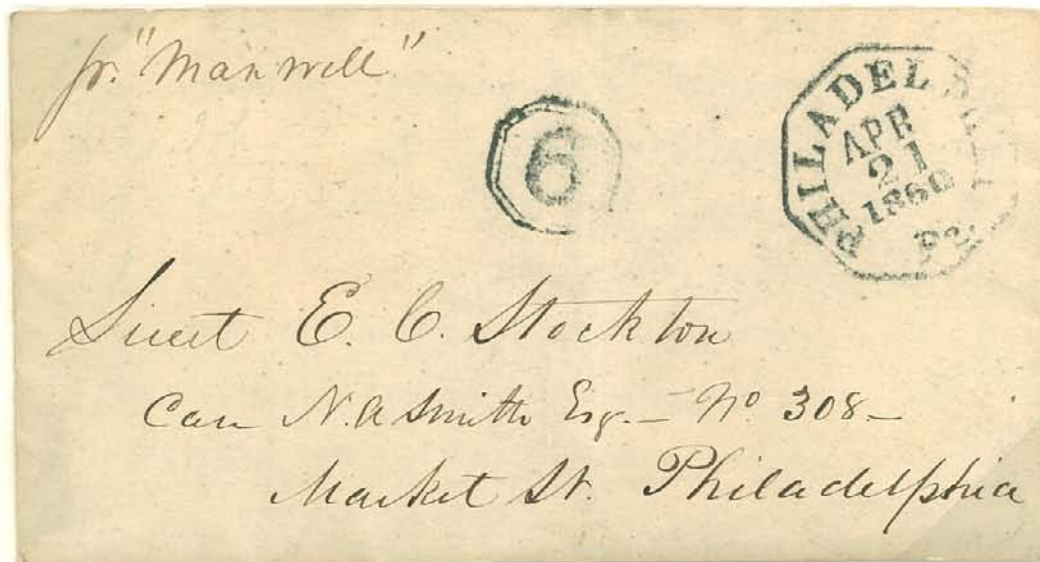 pr. "Maxwell"
6
PHILADELPHIA
APR
21
1860
Pa
Lieut E. C. Stockton
Care N. A Smith Esq. – No 308 –
Market St. Philadelphia